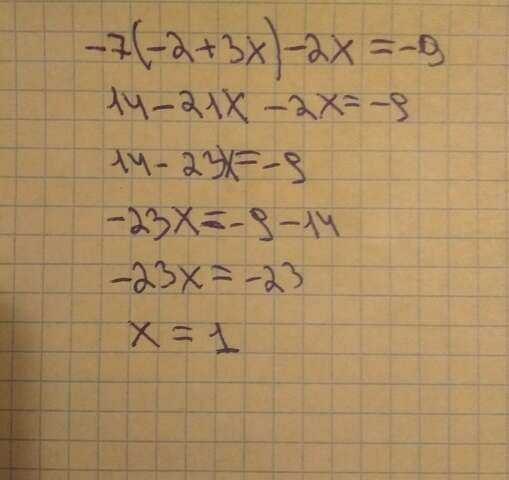 -7(-2+3x)-2x=-9
14-21x-2x=-9
14-23x=-9
-23x=-9-14
-23x=-23
x=1